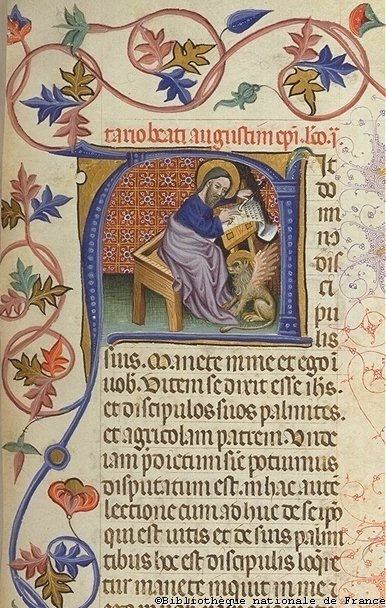 tario beati augustini epi. lco. i
Ait
do
mi
n9
disci
pu
lis
suis. Manete in me et ego i
uob. Vitem se dixit esse ihs.
et discipulos suos palmites.
et agricolam patrem. Unde
iam
disputatum est. in hac aute
lectione cum adhuc de seipo
qui est uitis et de suis palmi
tibus hoc est discipulis loqre
tur manete inquit in me
©Bibliothèque nationale de France